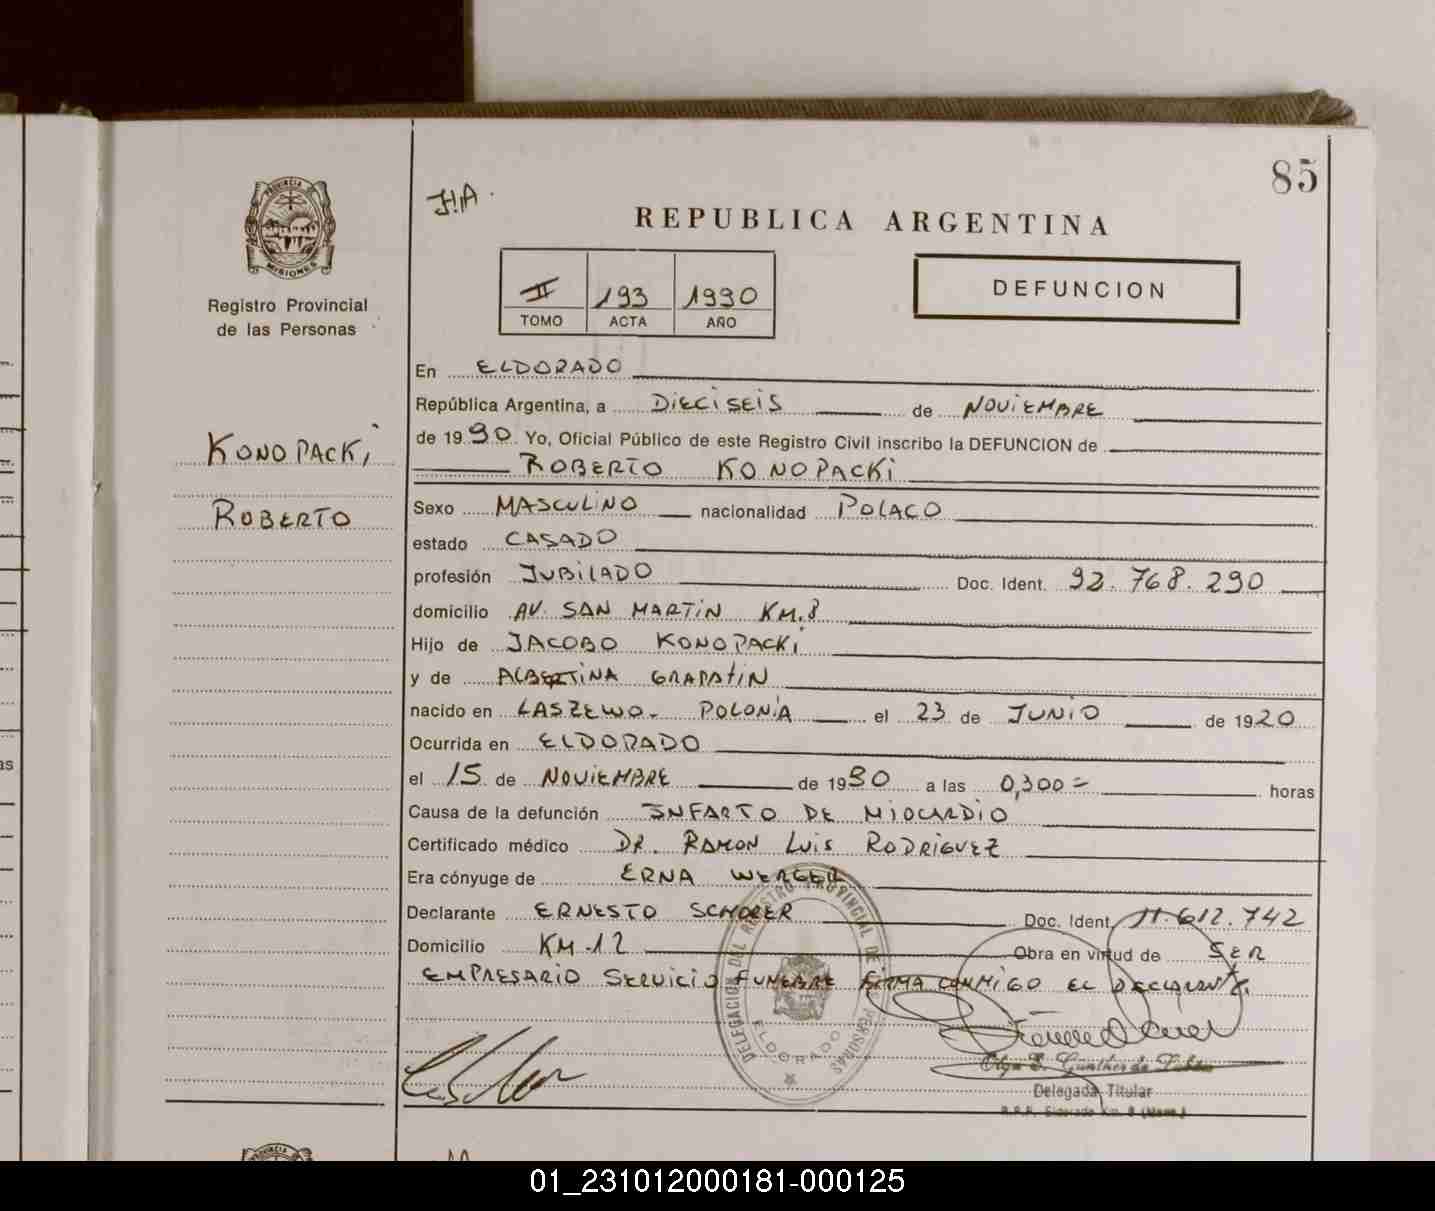 85
J.A.
REPUBLICA ARGENTINA
PROVINCIA DE
MISIONES
Registro Provincial
de las Personas
II 193 1990
TOMO ACTA AÑO
DEFUNCION
KONOPACKI
ROBERTO
En ELDORADO
República Argentina, a DIECISEIS de NOVIEMBRE
de 1990 Yo, Oficial Público de este Registro Civil inscribo la DEFUNCION de
ROBERTO KONOPACKI
Sexo MASCULINO nacionalidad POLACO
estado CASADO
profesión JUBILADO Doc. Ident. 92.768.290
domicilio AV. SAN MARTIN KM. 8
Hijo de JACOBO KONOPACKI
y de ALBERTINA
nacido en LASZEWO - POLONIA el 23 de JUNIO de 1920
Ocurrida en ELDORADO
el 15 de NOVIEMBRE de 1990 a las 0,300= horas
Causa de la defunción INFARTO DE MIOCARDIO
Certificado médico DR. RAMON LUIS RODRIGUEZ
Era cónyuge de ERNA WERGER
Declarante ERNESTO SCHORER Doc. Ident. 11.612.742
Domicilio KM-12 Obra en virtud de SER
EMPRESARIO SERVICIO FUNEBRE FIRMA CONMIGO EL DECLARANTE.
DELEGACION DEL REGISTRO PROVINCIAL DE PERSONAS
ELDORADO
Olga E. Günther de
Delegada Titular
R.P.P. Eldorado Km. 8 (Mnes.)
01_231012000181-000125